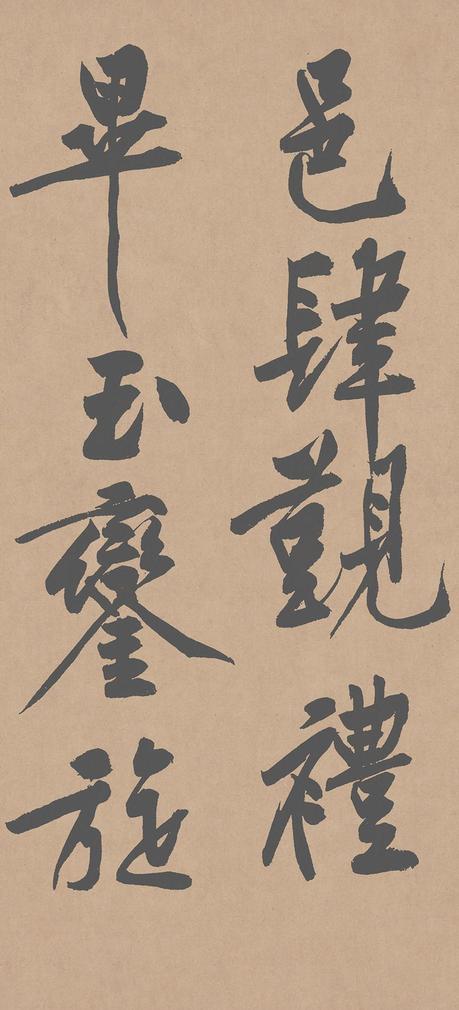 邑肆覲禮
畢玉鑾旋